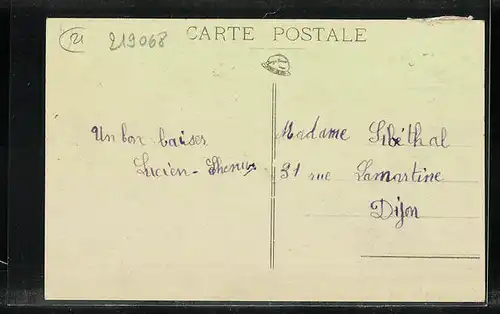 21 219068 CARTE POSTALE
Un bon baiser
Lucien -
Madame Sibéthal
31 rue Lamartine
Dijon